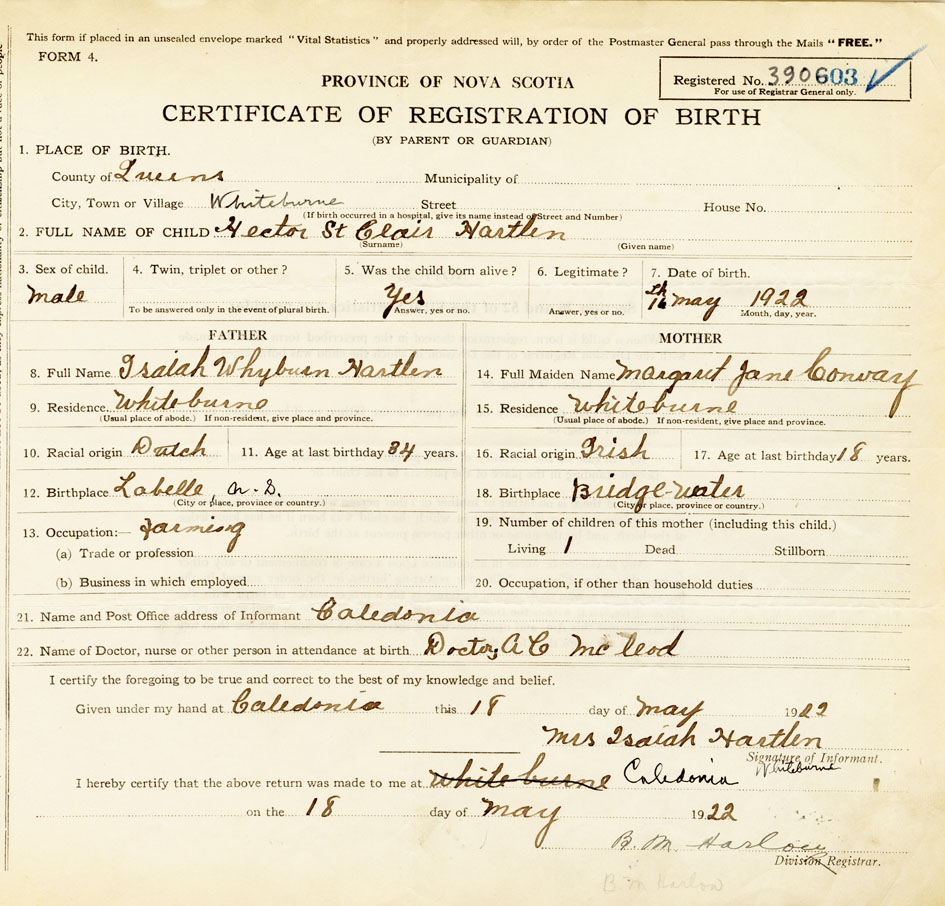 This form if placed in an unsealed envelope marked "Vital Statistics" and properly addressed will, by order of the Postmaster General pass through the Mails "FREE."
FORM 4.
Registered No. 390603
For use of Registrar General only.
PROVINCE OF NOVA SCOTIA
CERTIFICATE OF REGISTRATION OF BIRTH
(BY PARENT OR GUARDIAN)
1. PLACE OF BIRTH.
County of Queens Municipality of
City, Town or Village Whiteburne Street House No.
(If birth occurred in a hospital, give its name instead of Street and Number)
2. FULL NAME OF CHILD Hector St Clair Hartlen
(Surname) (Given name)
3. Sex of child. 4. Twin, triplet or other? 5. Was the child born alive? 6. Legitimate? 7. Date of birth.
Male Yes 16th May 1922
To be answered only in the event of plural birth. Answer, yes or no. Answer, yes or no. Month, day, year.
FATHER MOTHER
8. Full Name Isaiah Whyburn Hartlen 14. Full Maiden Name Margaret Jane Conway
9. Residence Whiteburne 15. Residence Whiteburne
(Usual place of abode.) If non-resident, give place and province. (Usual place of abode.) If non-resident, give place and province.
10. Racial origin Dutch 11. Age at last birthday 34 years. 16. Racial origin Irish 17. Age at last birthday 18 years.
12. Birthplace Labelle, N.S. 18. Birthplace Bridge-water
(City or place, province or country.) (City or place, province or country.)
13. Occupation:— Farming 19. Number of children of this mother (including this child.)
(a) Trade or profession Living 1 Dead Stillborn
(b) Business in which employed 20. Occupation, if other than household duties
21. Name and Post Office address of Informant Caledonia
22. Name of Doctor, nurse or other person in attendance at birth Doctor, A C McLeod
I certify the foregoing to be true and correct to the best of my knowledge and belief.
Given under my hand at Caledonia this 18 day of May 1922
Mrs Isaiah Hartlen
Signature of Informant.
Whiteburne
I hereby certify that the above return was made to me at Whiteburne Caledonia
on the 18 day of May 1922
B. M. Harlow
Division Registrar.
B. M Harlow